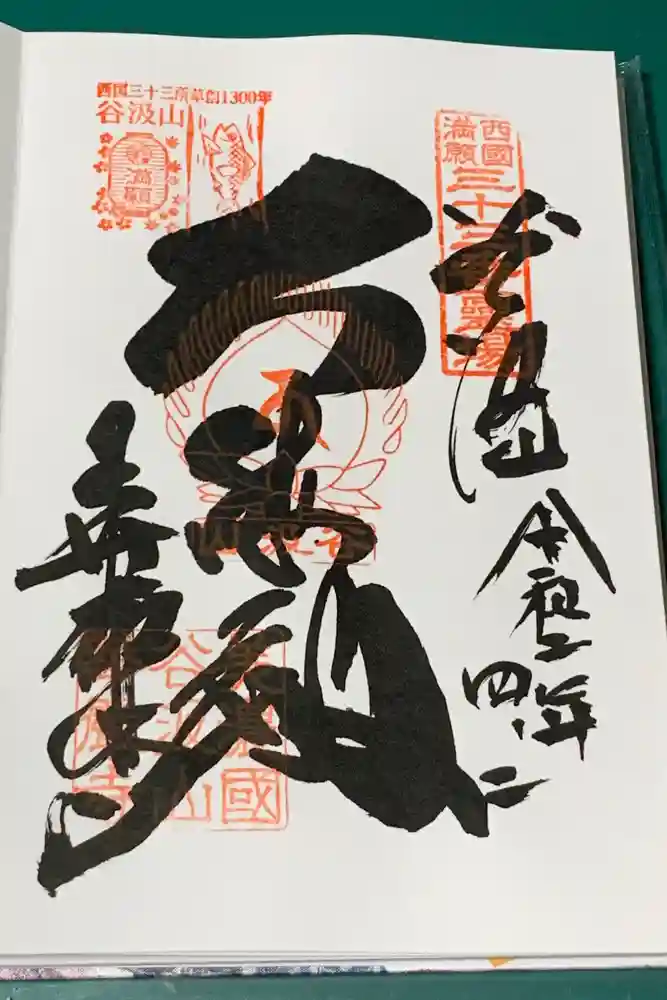 西国三十三所草創1300年
谷汲山
満願
西國
満願
三十三番霊場
谷汲山
令和二年
四、二
大悲殿
谷汲山
華厳寺
美濃國
谷汲山
華厳寺